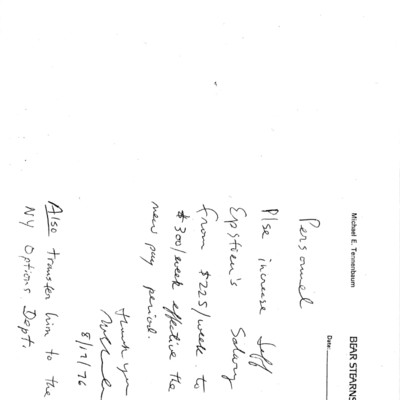 Michael E. Tennenbaum
BEAR STEARNS
Date:
Personnel
Plse increase Jeff
Epstein's Salary
from $225/week to
$300/week effective the
new pay period.
Thank you
8/17/76
Also transfer him to the
NY Options Dept.